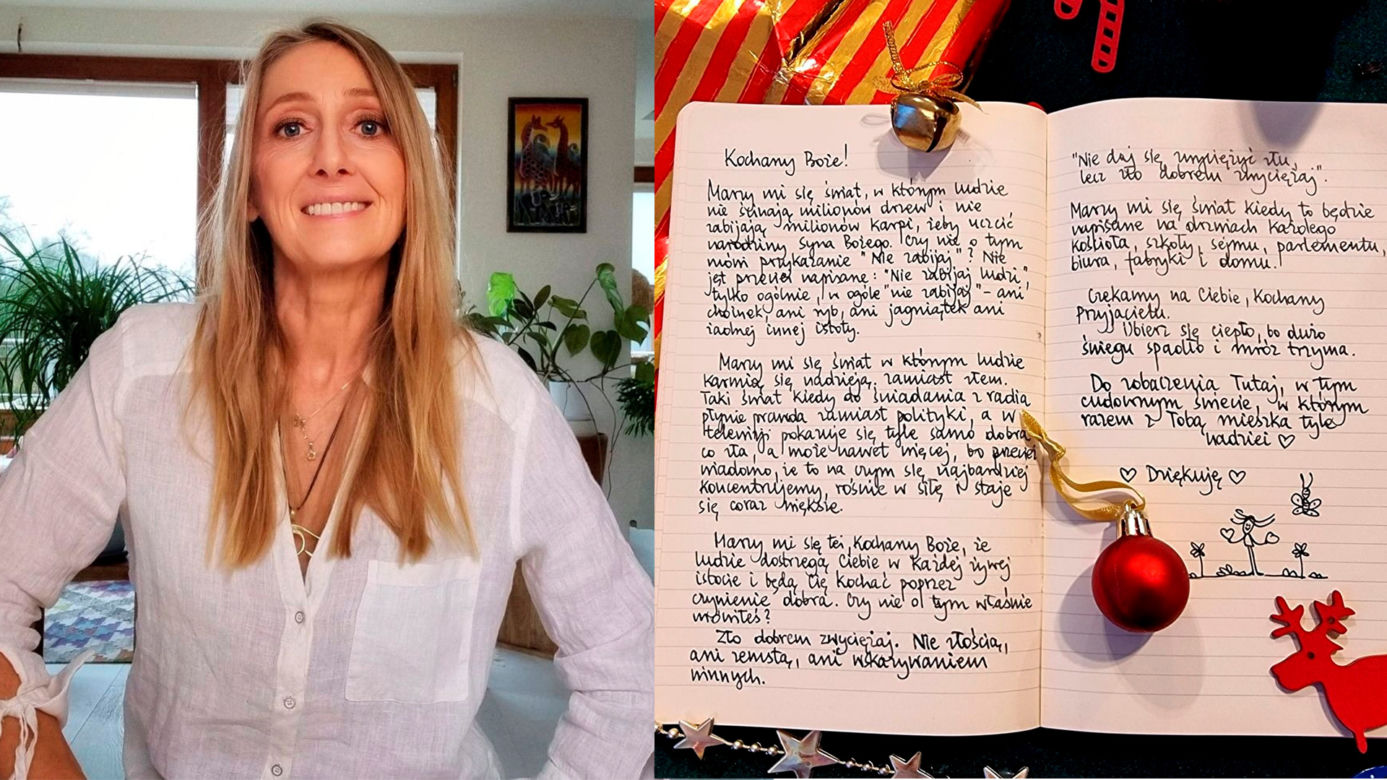 Kochany Boże!
Marzy mi się świat, w którym ludzie
nie ścinają milionów drzew i nie
zabijają milionów karpi, żeby uczcić
narodziny syna Bożego. Czy nie o tym
mówi przykazanie "Nie zabijaj"? Nie
jest przecież napisane: "Nie zabijaj ludzi",
tylko ogólnie, w ogóle "nie zabijaj" - ani
choinek, ani ryb, ani jagniątek ani
żadnej innej istoty.
Marzy mi się świat w którym ludzie
karmią się nadzieją, zamiast złem.
Taki świat kiedy do śniadania z radia
płynie prawda zamiast polityki, a w
telewizji pokazuje się tyle samo dobra
co zła, a może nawet więcej, bo przecież
wiadomo, że to na czym się najbardziej
koncentrujemy, rośnie w siłę i staje
się coraz większe.
Marzy mi się też, Kochany Boże, że
ludzie dostrzegą Ciebie w każdej żywej
istocie i będą Cię kochać poprzez
czynienie dobra. Czy nie o tym właśnie
mówiłeś?
Zło dobrem zwyciężaj. Nie złością,
ani zemstą, ani wskazywaniem
winnych.
"Nie daj się zwyciężyć złu,
lecz zło dobrem zwyciężaj".
Marzy mi się świat kiedy to będzie
napisane na drzwiach każdego
kościoła, szkoły, sejmu, parlamentu,
biura, fabryki i domu.
Czekamy na Ciebie, Kochany
Przyjacielu.
Ubierz się ciepło, bo dużo
śniegu spadło i mróz trzyma.
Do zobaczenia Tutaj, w tym
cudownym świecie, w którym
razem z Tobą mieszka tyle
nadziei ♡
♡ Dziękuję ♡